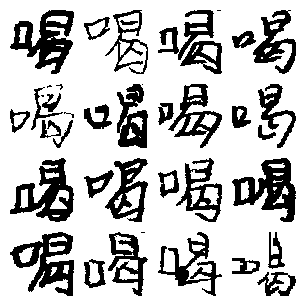 喝喝喝喝
喝喝喝喝
喝喝喝喝
喝喝喝喝